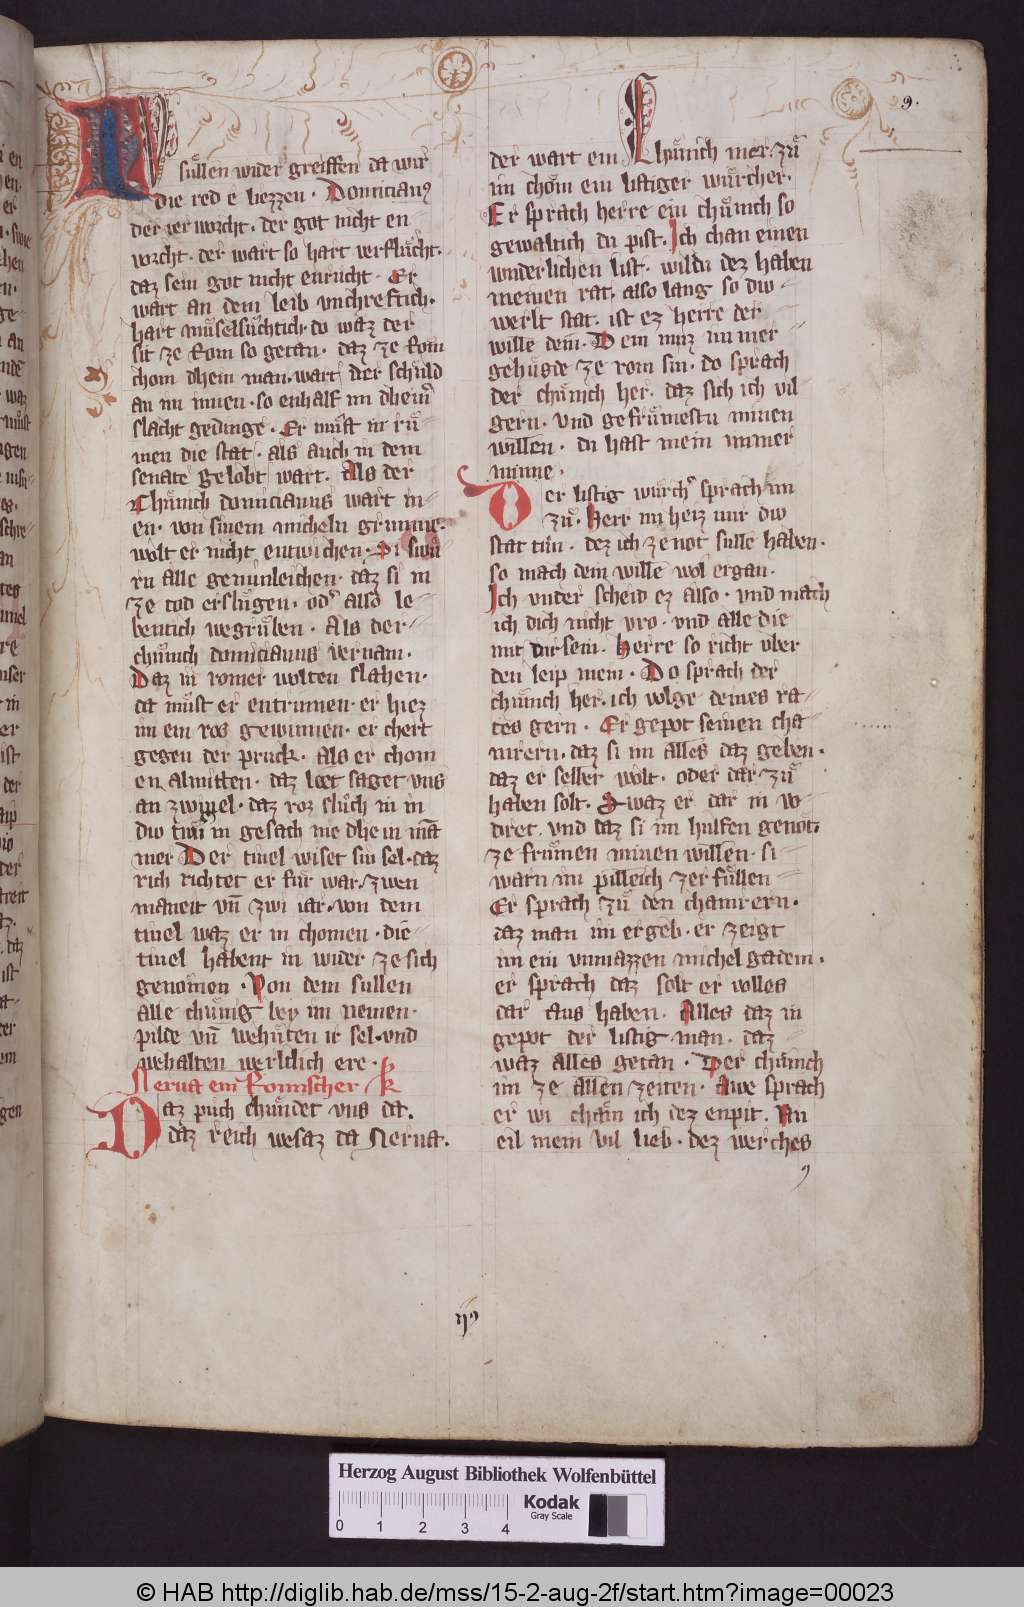 9.
NV sullen wider greiffen da wir
die red e liezzen · Domicianꝰ
der ier vorcht · der got nicht en
vorcht · der wart so hart verflůcht ·
daz sein got nicht enrucht · Er
wart an dem leib vnchreftich ·
hart můselsůchtich · do waz der
sit ze Rom so getan · daz ze Rom
chom dhein man · wart der schuld
an im innen · so enhalf im dhein
slacht gedinge · Er můst in rů
men die stat · als auch in dem
senate gelobt wart · Als der
Chůnich domicianus wart in
en · von sinem micheln grimme ·
wolt er nicht entwichen · Di swů
rn alle gemainleichen · daz si in
ze tod erslůgen · oder also le
bentich wegrůben · Als der
chůnich domicianus vernam ·
Daz in romer wolten slahen ·
da můst er entrinnen · er hiez
im ein ros gewinnen · er chert
gegen der pruck · Als er chom
en almitten · daz liet saget vns
an zwiuel · daz roz slůch in in
div tiuer in gesach nie dhein mā
mer Der tiuel wiset sin sel · daz
rich richtet er fur war · zwen
maneit vn̄ zwi iar · von dem
tiuel waz er in chomen · die
tiuel habent in wider ze sich
genomen · Von dem sullen
alle chůnig bey im nemen ·
pilde vn̄ wehůten ir sel · vnd
wehalten werltlich ere ·
Nerua ein Romischer k
Daz půch chůndet vns da ·
daz reich wesaz da Nerua ·
der wart ein chůnich mer · zů
im chom ein listiger wůrcher ·
Er sprach herre ein chůnich so
gewaltich du pist · Ich chan einen
wnderlichen list · wildu dez haben
meinen rat · also lang so div
werlt stat · ist ez herre der
wille dein · Dein muz im mer
gehůgde ze rom sin · do sprach
der chůnich her · daz sich ich vil
gern · vnd gefrůmestu minen
willen · du hast mein immer
minne ·
Der listig wůrcher sprach im
zů · Herr nu heiz mir div
stat tun · dez ich ze not sulle haben ·
so mach dein wille wol ergan ·
Ich vnder scheid ez also · vnd mach
ich dich nicht vro · vnd alle die
mit dir sein · Herre so richt vber
den leip mein · Do sprach der
chůnich her · ich volge deines ra
tes gern · Er gepot seinen cha
mrern · daz si im alles daz geben ·
daz er selber wolt · oder dar zů
haben solt · Swaz er dar in vo
dret · vnd daz si im hulfen genot ·
ze frůmen minen willen · si
warn im pilleich zerfůllen
Er sprach zů den chamrern ·
daz man im ergeb · er zeigt
im ein vnmazzen michel gadem ·
er sprach daz solt er volles
dar aus haben · Alles daz in
gepot der listig man · daz
waz alles getan · Der chůnich
im ze allen zeiten · Awe sprach
er wi cham ich dez enpit · Nu
eil mein vil lieb · dez werches
ijꝰ
Herzog August Bibliothek Wolfenbüttel
0 1 2 3 4
Kodak
Gray Scale
© HAB http://diglib.hab.de/mss/15-2-aug-2f/start.htm?image=00023